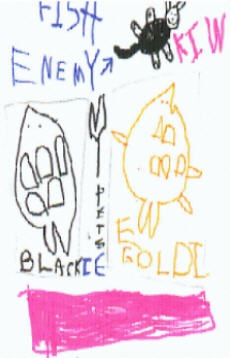 FISH
ENEMY
KIW
PETS
BLACKIE
GOLDI
E